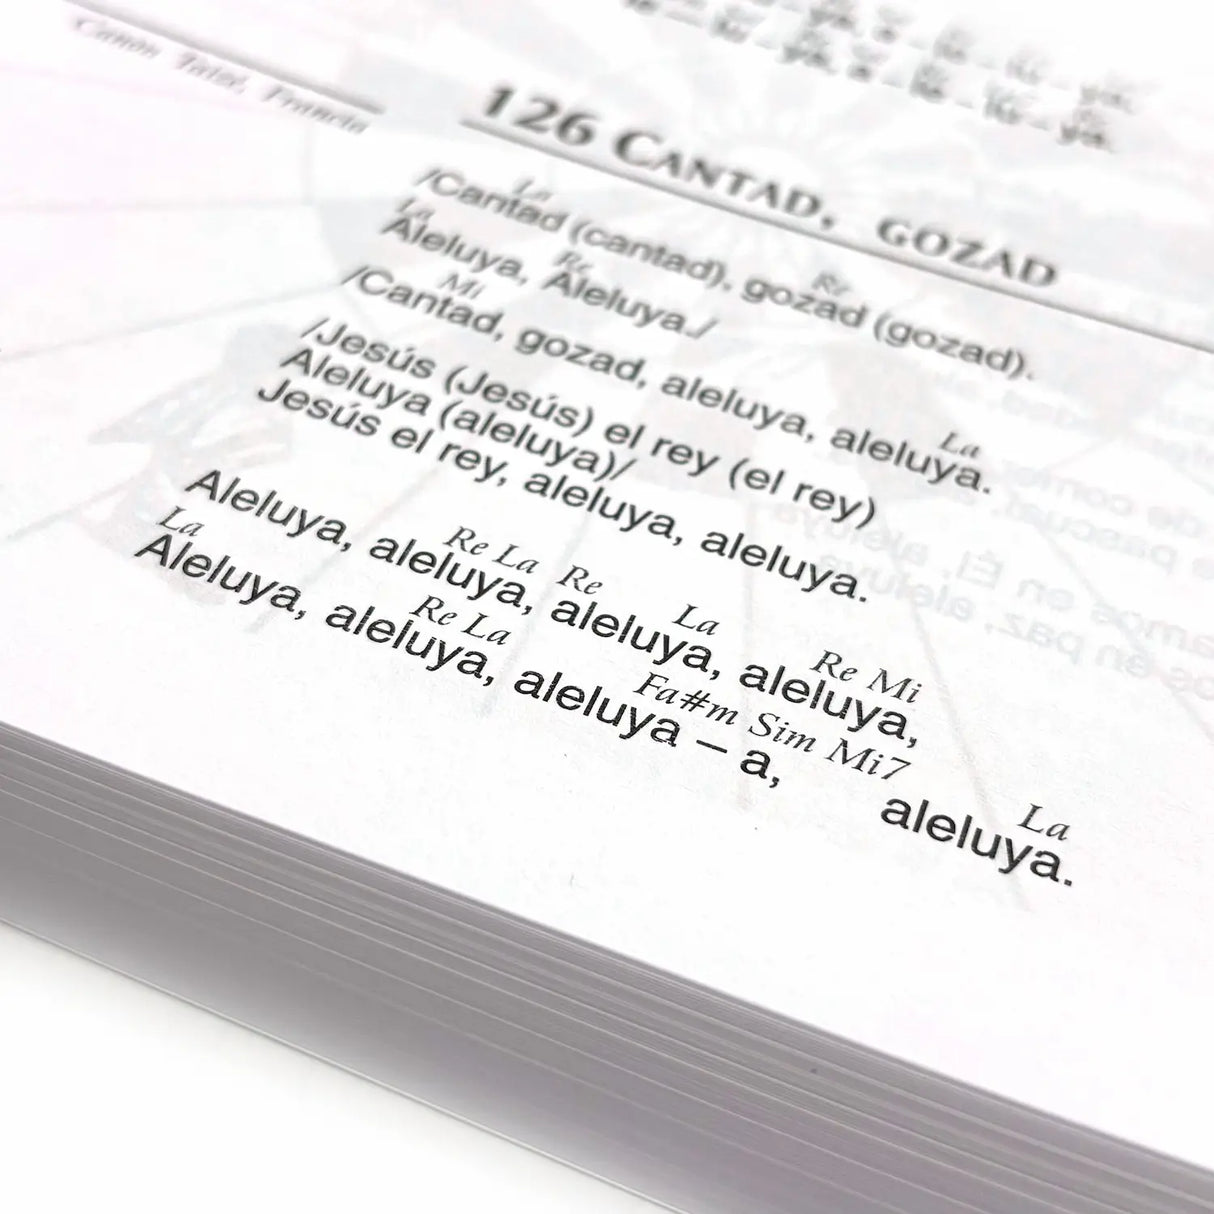 Canon Taizé, Francia
126 CANTAD, GOZAD
La Re
/Cantad (cantad), gozad (gozad).
La Re
Aleluya, Aleluya./
Mi La
/Cantad, gozad, aleluya, aleluya.
/Jesús (Jesús) el rey (el rey)
Aleluya (aleluya)/
Jesús el rey, aleluya, aleluya.
Re La Re La Re Mi
Aleluya, aleluya, aleluya, aleluya,
La Re La Fa#m Sim Mi7 La
Aleluya, aleluya, aleluya – a, aleluya.